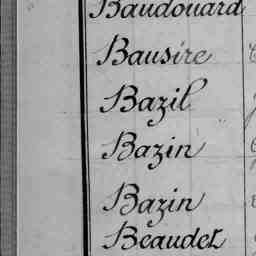 Baudouard
Bausire
Bazil
Bazin
Bazin
Beaudet